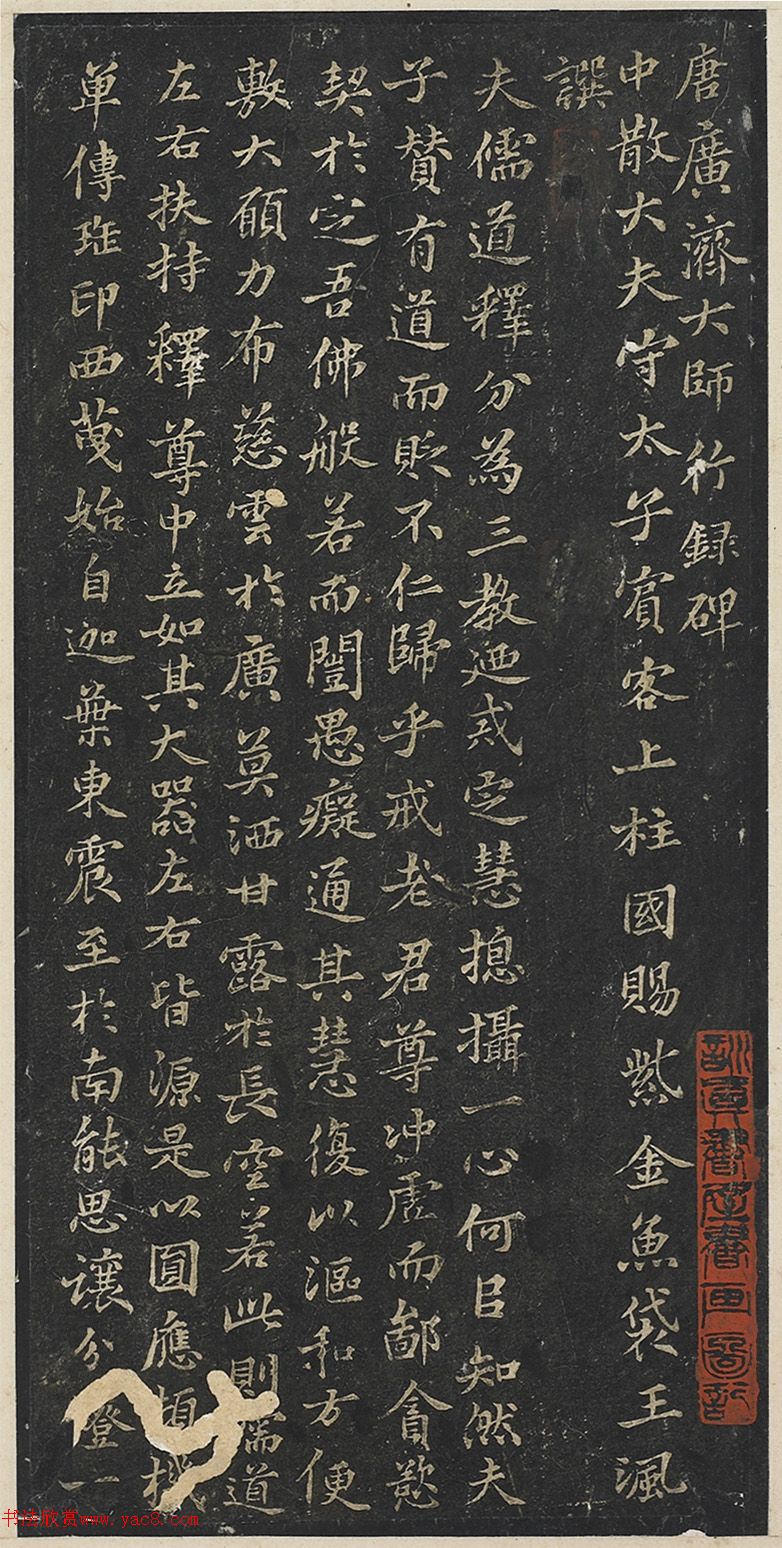 唐廣濟大師行録碑
中散大夫守太子賓客上柱國賜紫金魚袋王渢
譔
夫儒道釋分為三教廼戒定慧揔攝一心何㠯知然夫
子賛有道而貶不仁歸乎戒老君尊沖虛而鄙貪慾
契於定吾佛般若而闓愚癡通其慧復以漚和方便
敷大願力布慈雲於廣莫洒甘露於長空若此則儒道
左右扶持釋尊中立如其大器左右皆源是以圓應頓機
單傳班印西蔑始自迦葉東震至於南能思讓分燈一
书法欣赏www.yac8.com